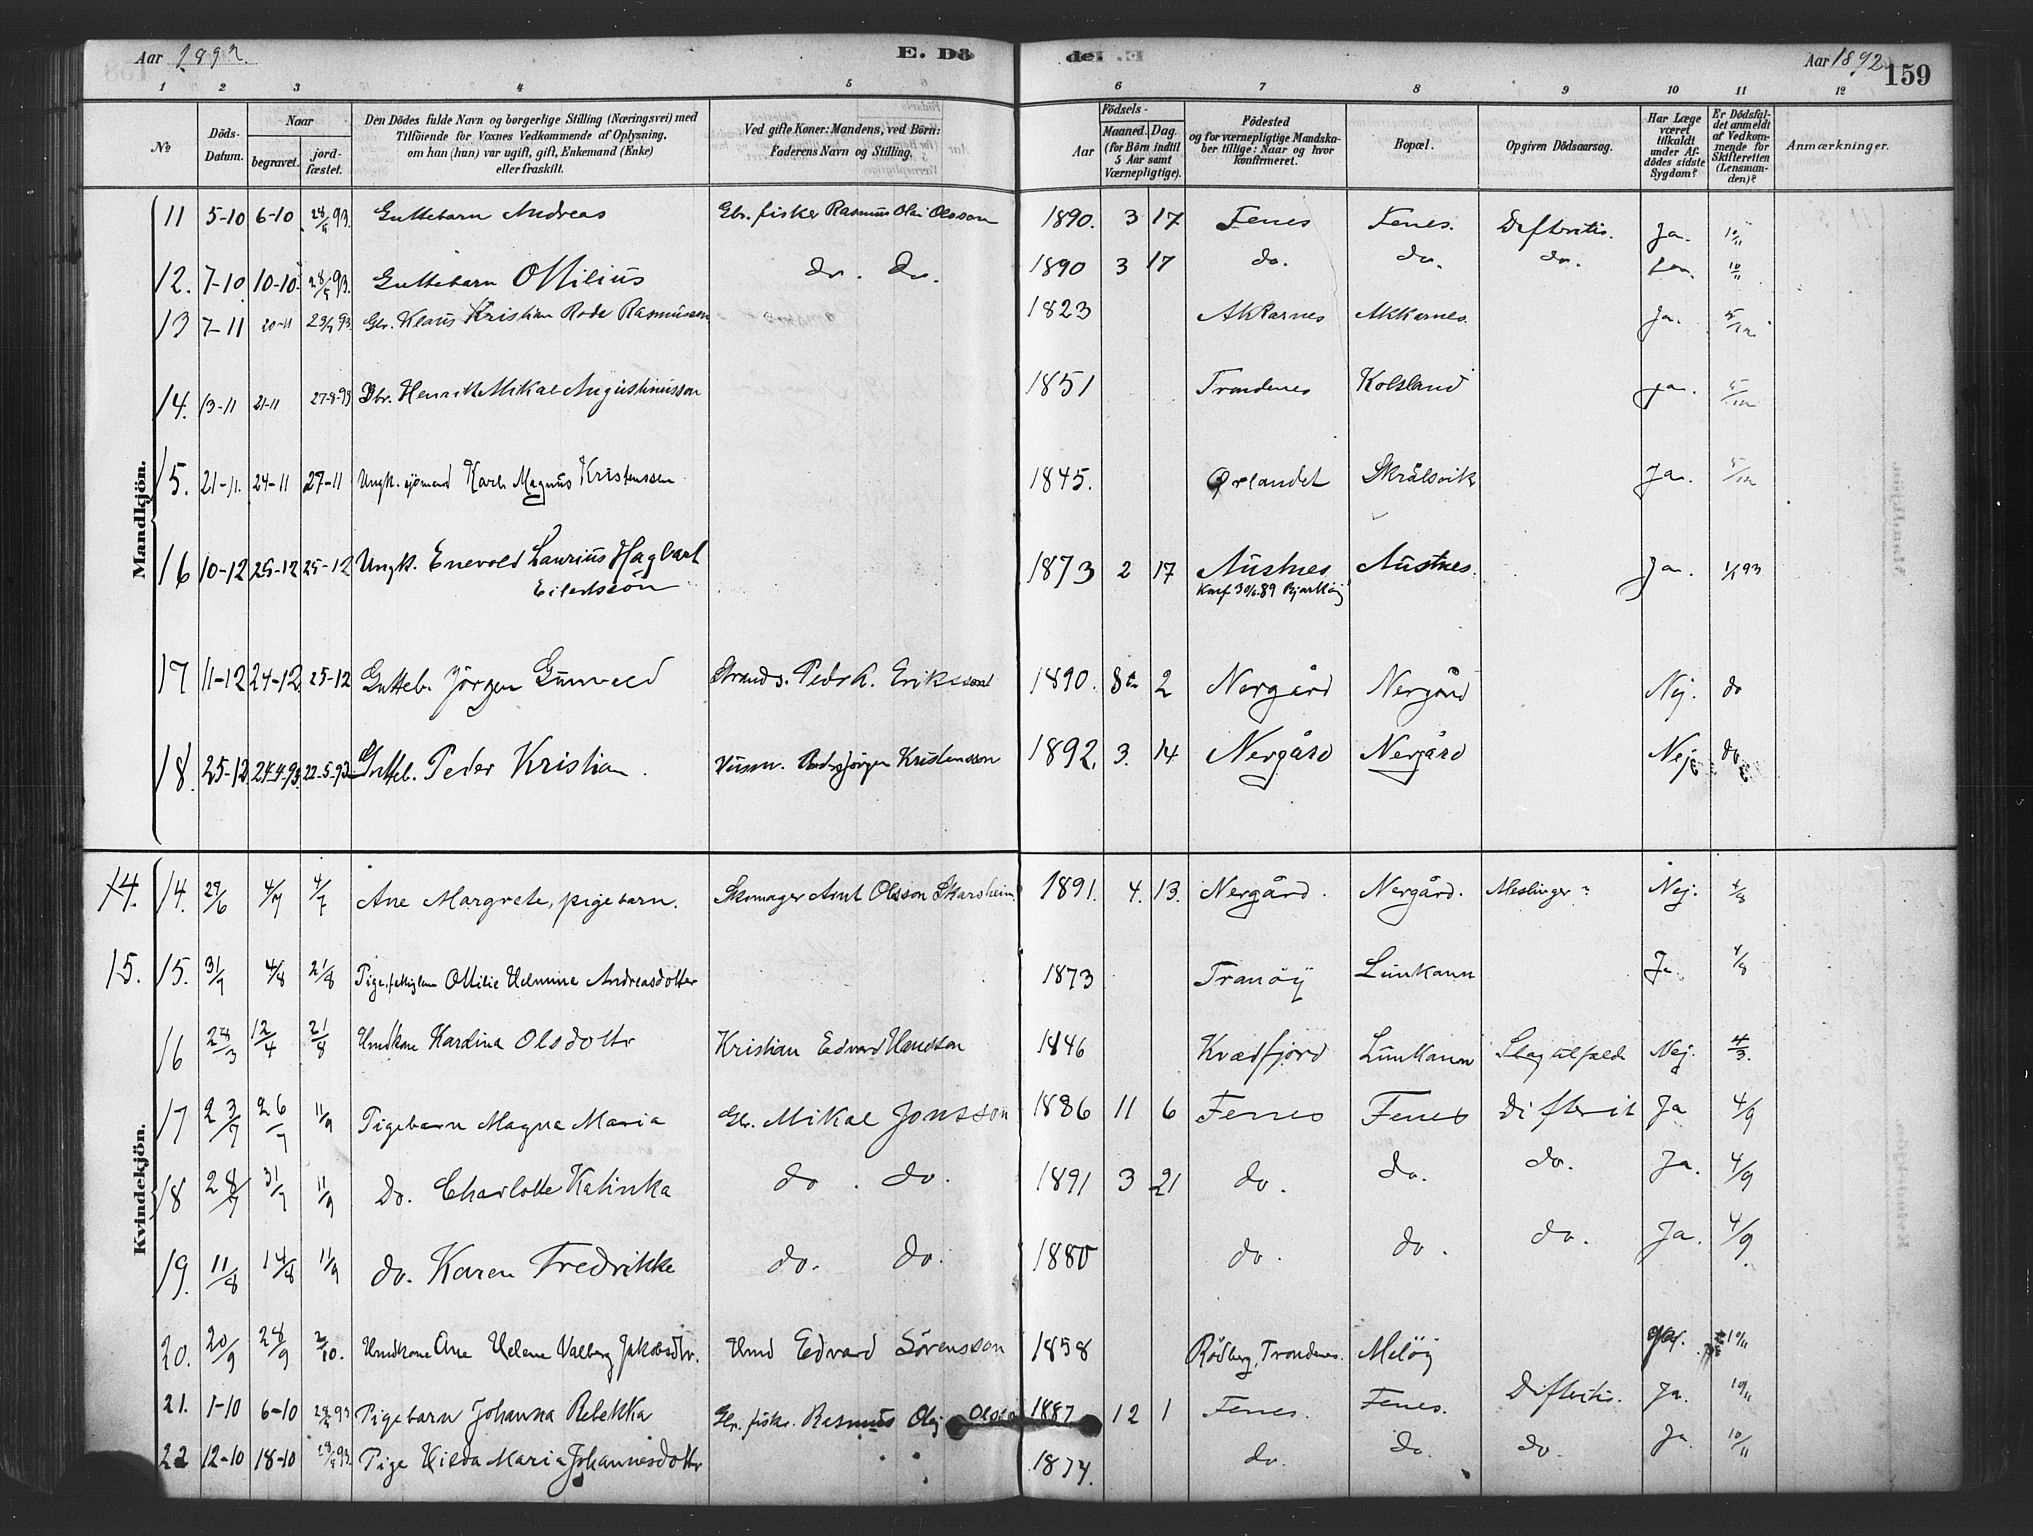 Aar 1892. E. Dö de! Aar 1892. 159
1 2 3 4 5 6 7 8 9 10 11 12
№ Döds-Datum. Naar begravet. jord-fæstet.
Den Dödes fulde Navn og borgerlige Stilling (Næringsvei) med
Tilföiende for Voxnes Vedkommende af Oplysning,
om han (hun) var ugift, gift, Enkemand (Enke)
eller fraskilt.
Ved gifte Koner: Mandens, ved Börn:
Faderens Navn og Stilling.
Födsels-
Aar Maaned. Dag.
(for Börn indtil
5 Aar samt
Værnepligtige).
Födested
og for værnepligtige Mandska-
ber tillige: Naar og hvor
konfirmeret.
Bopæl.
Opgiven Dödsaarsag.
Har Læge
været
tilkaldt
under Af-
dödes sidste
Sygdom?
Er Dödsfal-
det anmeldt
af Vedkom-
mende for
Skifteretten
(Lensman-
den)?
Anmærkninger.
Mandkjön.
11 5-10 6-10 28/5 93. Guttebarn Andreas Gbr. fisker Rasmus Olai Olsson 1890. 3 17 Fenes Fenes. Difteritis. Ja. 10/11
12. 7-10 10-10. 28/5 93. Guttebarn Ottilius do. do. 1890 3 17 do. do. do. 10/11
13 7-11 20-11 Gbr. Klaus Kristian Rode Rasmusson 1823 Akkarnes Akkarnes. Ja. 5/12
14. 13-11 21-11 Gbr. Henrik Mikal Augustinusson 1851 Trondenes Kolsland Ja. 5/12
15. 21-11. 24-11 27-11 Ungk. sjömand Karl Magnus Kristensson 1845. Ørlandet Skrålsvik Ja. 5/12
16 10-12 25-12 25-12 Ungk. Enevold Laurius Hagbart 1873 2 17 Austnes Austnes. Ja. 1/1 93
Eilertsson Konf. 30/6 89 Bjarköy
17 11-12 24-12. 25-12 Gutteb. Jörgen Gunvald Strands. Peder K. Eriksson 1890. 8de 2 Nergård Nergård Nej. do
18. 25-12 24-4-93. 22-5-93 Gutteb. Peder Kristian. Kristensson 1892. 3. 14 Nergård Nergård Nej do
Kvindekjön.
14. 14. 29/6 4/7 4/7 Ane Margrete, pigebarn. Skomager Arnt Olsson Skarsheim. 1891. 4. 13. Nergård. Nergård. Meslinger? Nej. 4/8
15. 15. 31/7 4/8 21/8 Pige, Ottilie Helmine Andreasdotter 1873 Tranöy Lunkann Ja 4/8
16 28/3 12/4 21/8 Hmdkone Hardina Olsdottr Kristian Edvard Hansson 1846 Kvædfjord Lunkann Slagtilfælde Nej. 4/3.
17 23/7 26/7 11/9 Pigebarn Magna Maria Gbr. Mikal Jonsson 1886 11 6 Fenes Fenes Difterit Ja 4/9
18 28/7 31/7 11/9 Do. Charlotte Katinka do. do. 1891 3 21 do. do. do. Ja. 4/9
19. 11/8 14/8 11/9 do. Karen Fredrikke do. do. 1880 do. do. do. Ja. 4/9.
20. 20/9 28/9 2/10. Hmdkone Ane Helene Valberg Jakobsdtr. Hmd Edvard Sörensson 1858 Rödberg, Trondenes. Melöy 10/11
21. 1-10 6-10 28/5 93 Pigebarn Johanna Rebekka Gbr. fisker. Rasmus Olaj Olsson 1887 12 1 Fenes. Fenes. Difteritis. Ja. 10/11
22 12-10 18-10 28/5 93 Pige Hilda Maria Johannesdottr 1874. do. do. do. Ja 10/11